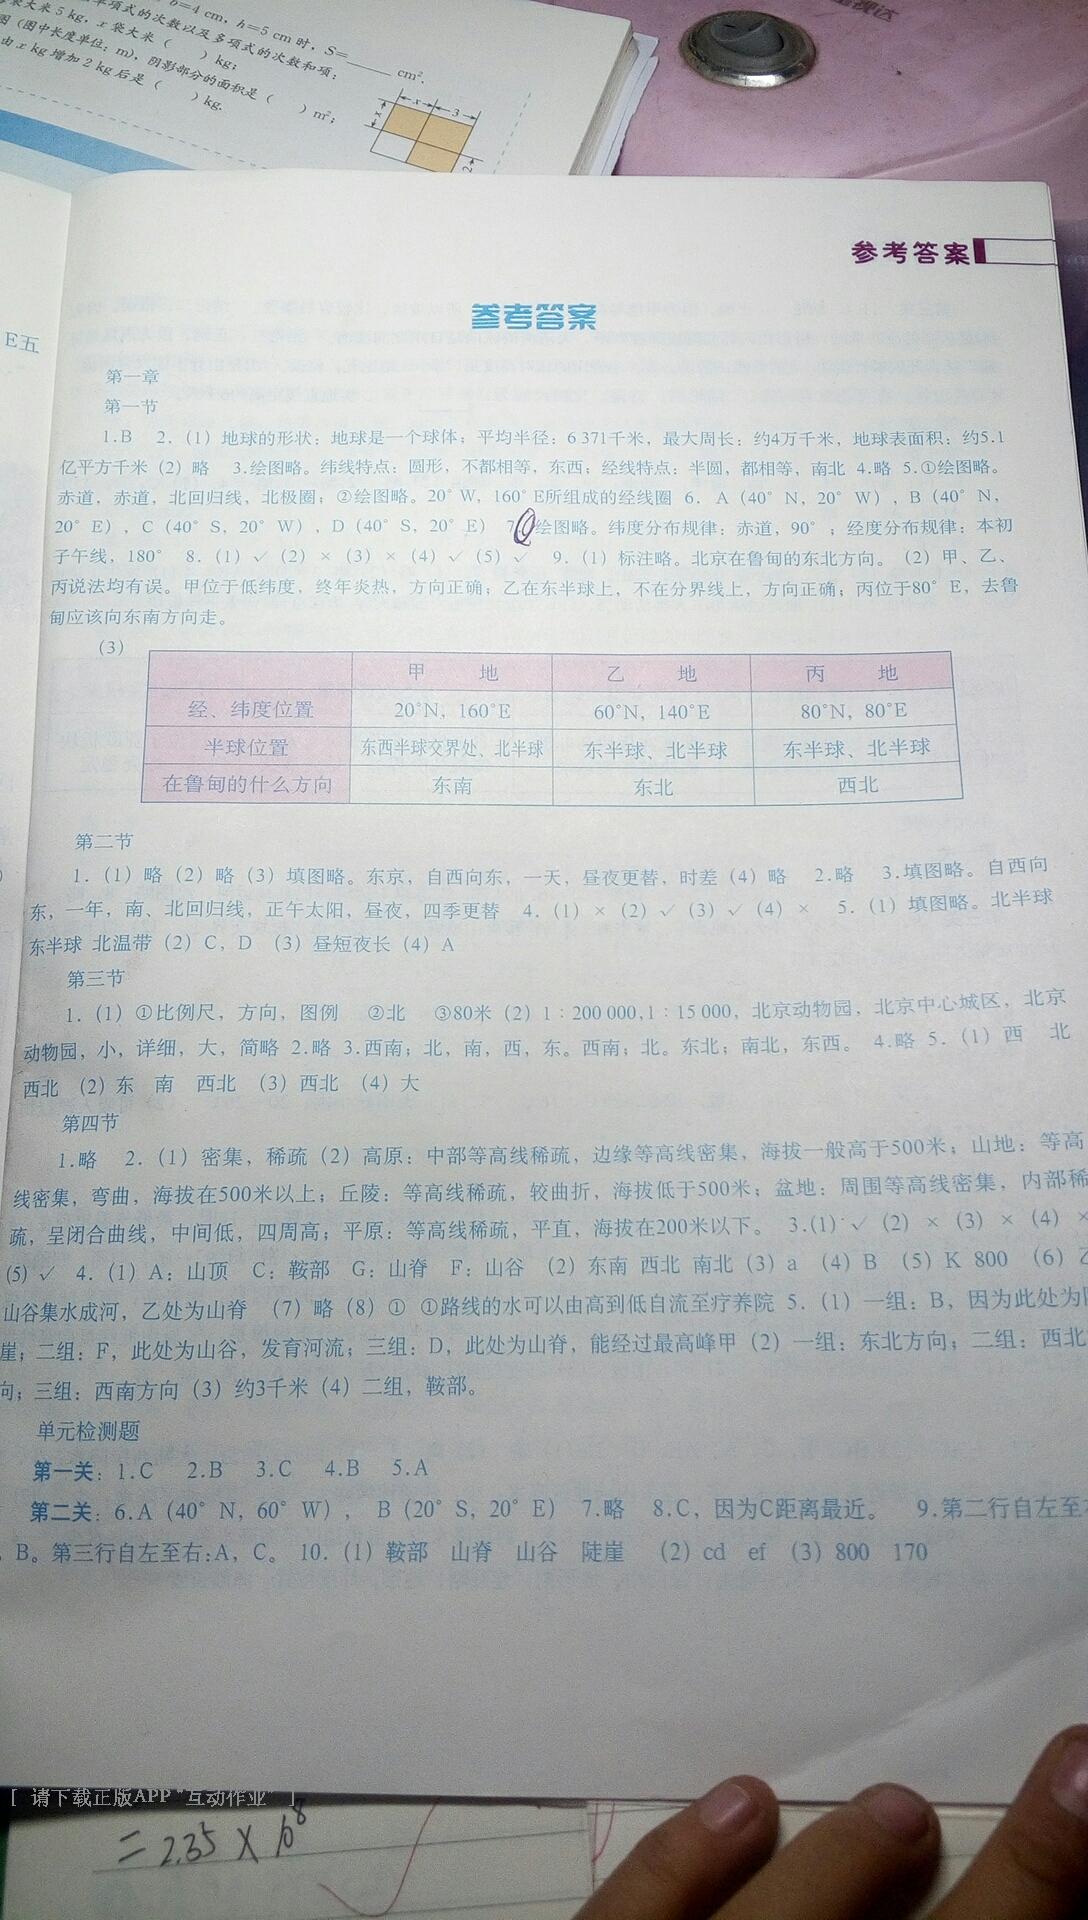 b=4 cm, h=5 cm 时, S=____ cm².
单项式的次数以及多项式的次数和项:
袋大米 5 kg, x 袋大米 (  ) kg;
图 (图中长度单位: m), 阴影部分的面积是 (  ) m²;
由 x kg 增加 2 kg 后是 (  ) kg.
x 3
x
2
E五
参考答案
参考答案
第一章
第一节
1.B 2.（1）地球的形状：地球是一个球体；平均半径：6 371千米，最大周长：约4万千米，地球表面积：约5.1
亿平方千米（2）略 3.绘图略。纬线特点：圆形，不都相等，东西；经线特点：半圆，都相等，南北 4.略 5.①绘图略。
赤道，赤道，北回归线，北极圈；②绘图略。20°W，160°E所组成的经线圈 6. A（40°N，20°W），B（40°N，
20°E），C（40°S，20°W），D（40°S，20°E） 7 绘图略。纬度分布规律：赤道，90°；经度分布规律：本初
子午线，180° 8.（1）√（2）×（3）×（4）√（5）√ 9.（1）标注略。北京在鲁甸的东北方向。（2）甲、乙、
丙说法均有误。甲位于低纬度，终年炎热，方向正确；乙在东半球上，不在分界线上，方向正确；丙位于80°E，去鲁
甸应该向东南方向走。
（3）
甲 地 乙 地 丙 地
经、纬度位置 20°N，160°E 60°N，140°E 80°N，80°E
半球位置 东西半球交界处、北半球 东半球、北半球 东半球、北半球
在鲁甸的什么方向 东南 东北 西北
第二节
1.（1）略（2）略（3）填图略。东京，自西向东，一天，昼夜更替，时差（4）略 2.略 3.填图略。自西向
东，一年，南、北回归线，正午太阳，昼夜，四季更替 4.（1）×（2）√（3）√（4）× 5.（1）填图略。北半球
东半球 北温带（2）C，D （3）昼短夜长（4）A
第三节
1.（1）①比例尺，方向，图例 ②北 ③80米（2）1∶200 000,1∶15 000，北京动物园，北京中心城区，北京
动物园，小，详细，大，简略 2.略 3.西南；北，南，西，东。西南；北。东北；南北，东西。 4.略 5.（1）西 北
西北 （2）东 南 西北 （3）西北 （4）大
第四节
1.略 2.（1）密集，稀疏（2）高原：中部等高线稀疏，边缘等高线密集，海拔一般高于500米；山地：等高
线密集，弯曲，海拔在500米以上；丘陵：等高线稀疏，较曲折，海拔低于500米；盆地：周围等高线密集，内部稀
疏，呈闭合曲线，中间低，四周高；平原：等高线稀疏，平直，海拔在200米以下。 3.(1) √（2）×（3）×（4）×
(5) √ 4.（1）A：山顶 C：鞍部 G：山脊 F：山谷 （2）东南 西北 南北（3）a （4）B （5）K 800 （6）乙
山谷集水成河，乙处为山脊 （7）略（8）① ①路线的水可以由高到低自流至疗养院 5.（1）一组：B，因为此处为
崖；二组：F，此处为山谷，发育河流；三组：D，此处为山脊，能经过最高峰甲（2）一组：东北方向；二组：西北
向；三组：西南方向（3）约3千米（4）二组，鞍部。
单元检测题
第一关：1.C 2.B 3.C 4.B 5.A
第二关：6.A（40°N，60°W）， B（20°S，20°E） 7.略 8.C，因为C距离最近。 9.第二行自左至
，B。第三行自左至右:A，C。 10.（1）鞍部 山脊 山谷 陡崖 （2）cd ef （3）800 170
[ 请下载正版APP "互动作业" ]
= 2.35 × 10⁸